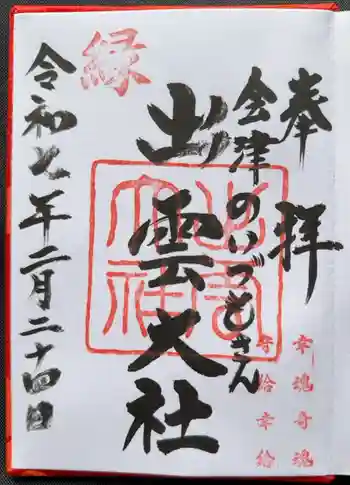 奉拝
会津のいづもさん
出雲大社
令和七年二月二十四日
縁
出雲大社
幸魂奇魂
守給幸給